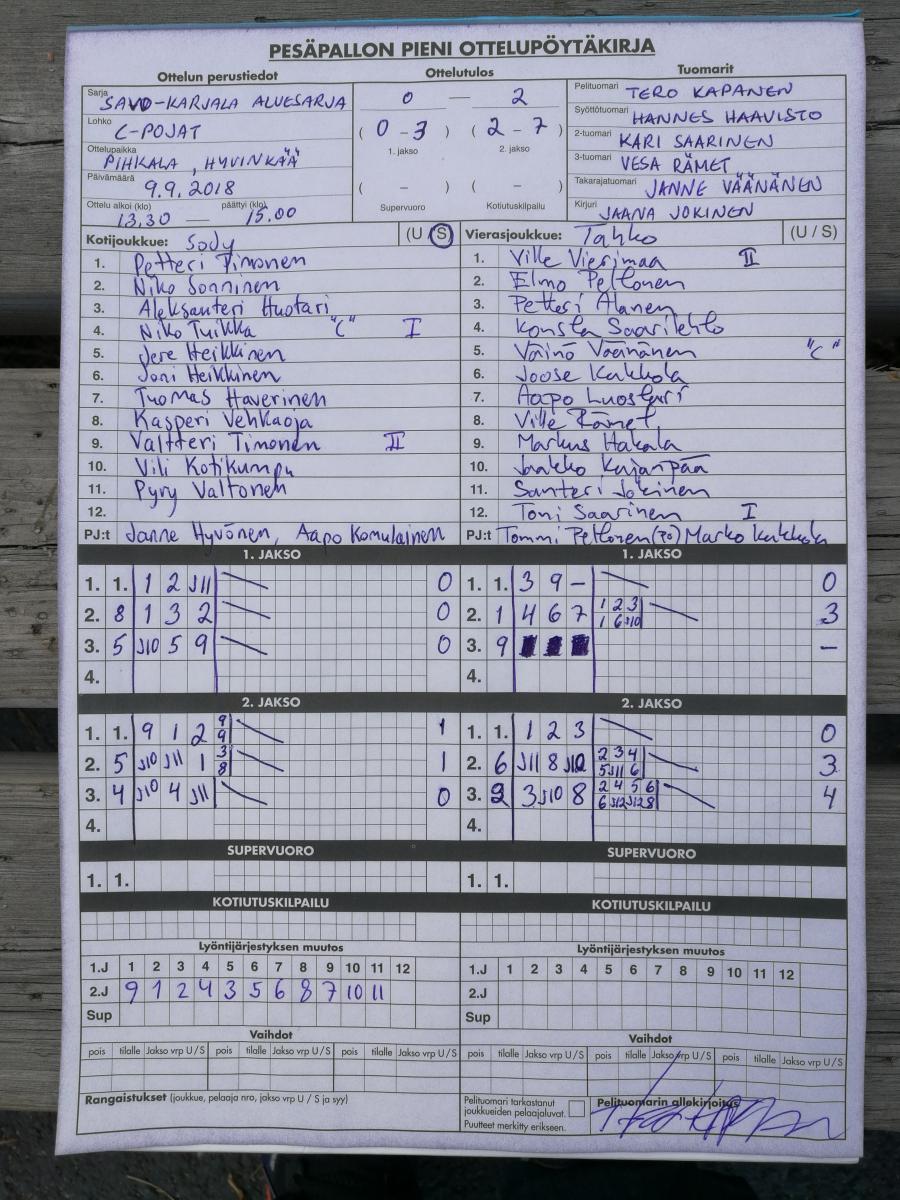 PESÄPALLON PIENI OTTELUPÖYTÄKIRJA
Ottelun perustiedot
Sarja SAVO-KARJALA ALUESARJA
Lohko C-POJAT
Ottelupaikka PIHKALA, HYVINKÄÄ
Päivämäärä 9.9.2018
Ottelu alkoi (klo) päättyi (klo)
13.30 — 15.00
Ottelutulos
0 — 2
( 0 - 3 ) ( 2 - 7 )
1. jakso 2. jakso
( - ) ( - )
Supervuoro Kotiutuskilpailu
Tuomarit
Pelituomari TERO KAPANEN
Syöttötuomari HANNES HAAVISTO
2-tuomari KARI SAARINEN
3-tuomari VESA RÄMET
Takarajatuomari JANNE VÄÄNÄNEN
Kirjuri JAANA JOKINEN
Kotijoukkue: SoJy (U / S)
1. Petteri Timonen
2. Niko Sonninen
3. Aleksanteri Huotari
4. Niko Tuikka "C" I
5. Jere Heikkinen
6. Joni Heikkinen
7. Tuomas Haverinen
8. Kasperi Vehkaoja
9. Valtteri Timonen II
10. Vili Kotikumpu
11. Pyry Valtonen
12.
PJ:t Janne Hyvönen, Aapo Komulainen
Vierasjoukkue: Tahko (U / S)
1. Ville Vierimaa II
2. Elmo Peltonen
3. Petteri Alanen
4. Konsta Saarilehto
5. Väinö Väänänen "C"
6. Joose Kukkola
7. Aapo Luostari
8. Ville Rämet
9. Markus Hakala
10. Jaakko Kajanpää
11. Santeri Jokinen
12. Toni Saarinen I
PJ:t Tommi Peltonen (PJ) Marko Kukkola
1. JAKSO
1. 1. 1 2 J11 0
2. 8 1 3 2 0
3. 5 J10 5 9 0
4.
2. JAKSO
1. 1. 9 1 2 9 9 1
2. 5 J10 J11 1 3 8 1
3. 4 J10 4 J11 0
4.
SUPERVUORO
1. 1.
KOTIUTUSKILPAILU
Lyöntijärjestyksen muutos
1.J 1 2 3 4 5 6 7 8 9 10 11 12
2.J 9 1 2 4 3 5 6 8 7 10 11
Sup
Vaihdot
pois tilalle Jakso vrp U / S pois tilalle Jakso vrp U / S pois tilalle Jakso vrp U / S
Rangaistukset (joukkue, pelaaja nro, jakso vrp U / S ja syy)
1. JAKSO
1. 1. 3 9 - 0
2. 1 4 6 7 1 2 3 3
1 6 J10
3. 9 -
4.
2. JAKSO
1. 1. 1 2 3 0
2. 6 J11 8 J12 2 3 4 3
5 J11 6
3. 2 3 J10 8 2 4 5 6 4
6 J12 J12 8
4.
SUPERVUORO
1. 1.
KOTIUTUSKILPAILU
Lyöntijärjestyksen muutos
1.J 1 2 3 4 5 6 7 8 9 10 11 12
2.J
Sup
Vaihdot
pois tilalle Jakso vrp U / S pois tilalle Jakso vrp U / S pois tilalle Jakso vrp U / S
Pelituomari tarkastanut
joukkueiden pelaajaluvat.
Puutteet merkitty erikseen.
Pelituomarin allekirjoitus